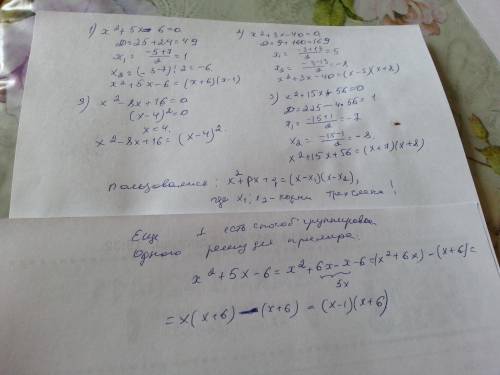 1) x²+5x-6=0
D=25+24=49
x₁=(-5+7)/2=1
x₂=(-5-7):2=-6
x²+5x-6=(x+6)(x-1)
2) x²+3x-40=0
D=9+160=169
x₁=(-3+13)/2=5
x₂=(-3-13)/2=-8
x²+3x-40=(x-5)(x+8)
3) x²-8x+16=0
(x-4)²=0
x=4.
x²-8x+16=(x-4)²
x²+15x+56=0
D=225-4·56=1
x₁=(-15+1)/2=-7
x₂=(-15-1)/2=-8.
x²+15x+56=(x+7)(x+8)
Пользовались: x²+px+q=(x-x₁)(x-x₂),
где x₁, x₂-корни трехчлена!
Еще 1 есть способ группировки
одного решу для примера:
x²+5x-6=x²+6x-x-6=(x²+6x)-(x+6)=
5x
=x(x+6)-(x+6)=(x-1)(x+6)